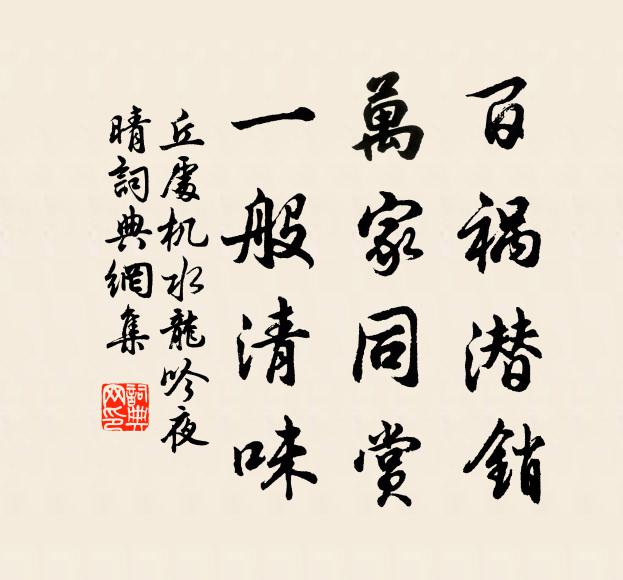 百祸潜銷
萬家同賞
一般清味
丘處机水龍吟夜
晴詞典網集
詞典网印